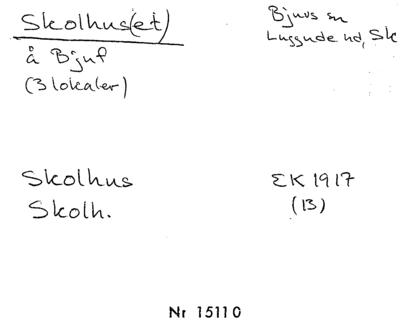 Skolhus(et)
å Bjuf
(3 lokaler)
Bjuvs sn
Luggude hd, Sk
Skolhus
Skolh.
EK 1917
(13)
Nr 15110